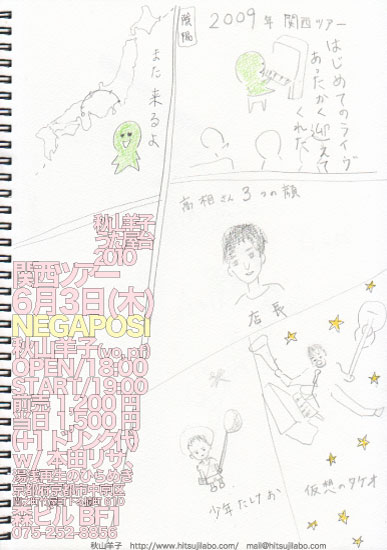 陰陽
2009年 関西ツアー
はじめてのライヴ
あったかく迎えて
くれた
また来るよ
高相さん3つの顔
店長
少年たけお
仮想のタケオ
秋山羊子
うた屋台
2010
関西ツアー
6月3日(木)
NEGAPOSI
秋山羊子(vo,pf)
OPEN/18:00
START/19:00
前売 1,200円
当日 1,500円
(+1ドリンク代)
w/ 本田リサ、
湯浅再生のひらめき
京都府京都市中京区
森ビル BF1
075-252-8856
秋山羊子 http://www.hitsujilabo.com/ mail@hitsujilabo.com